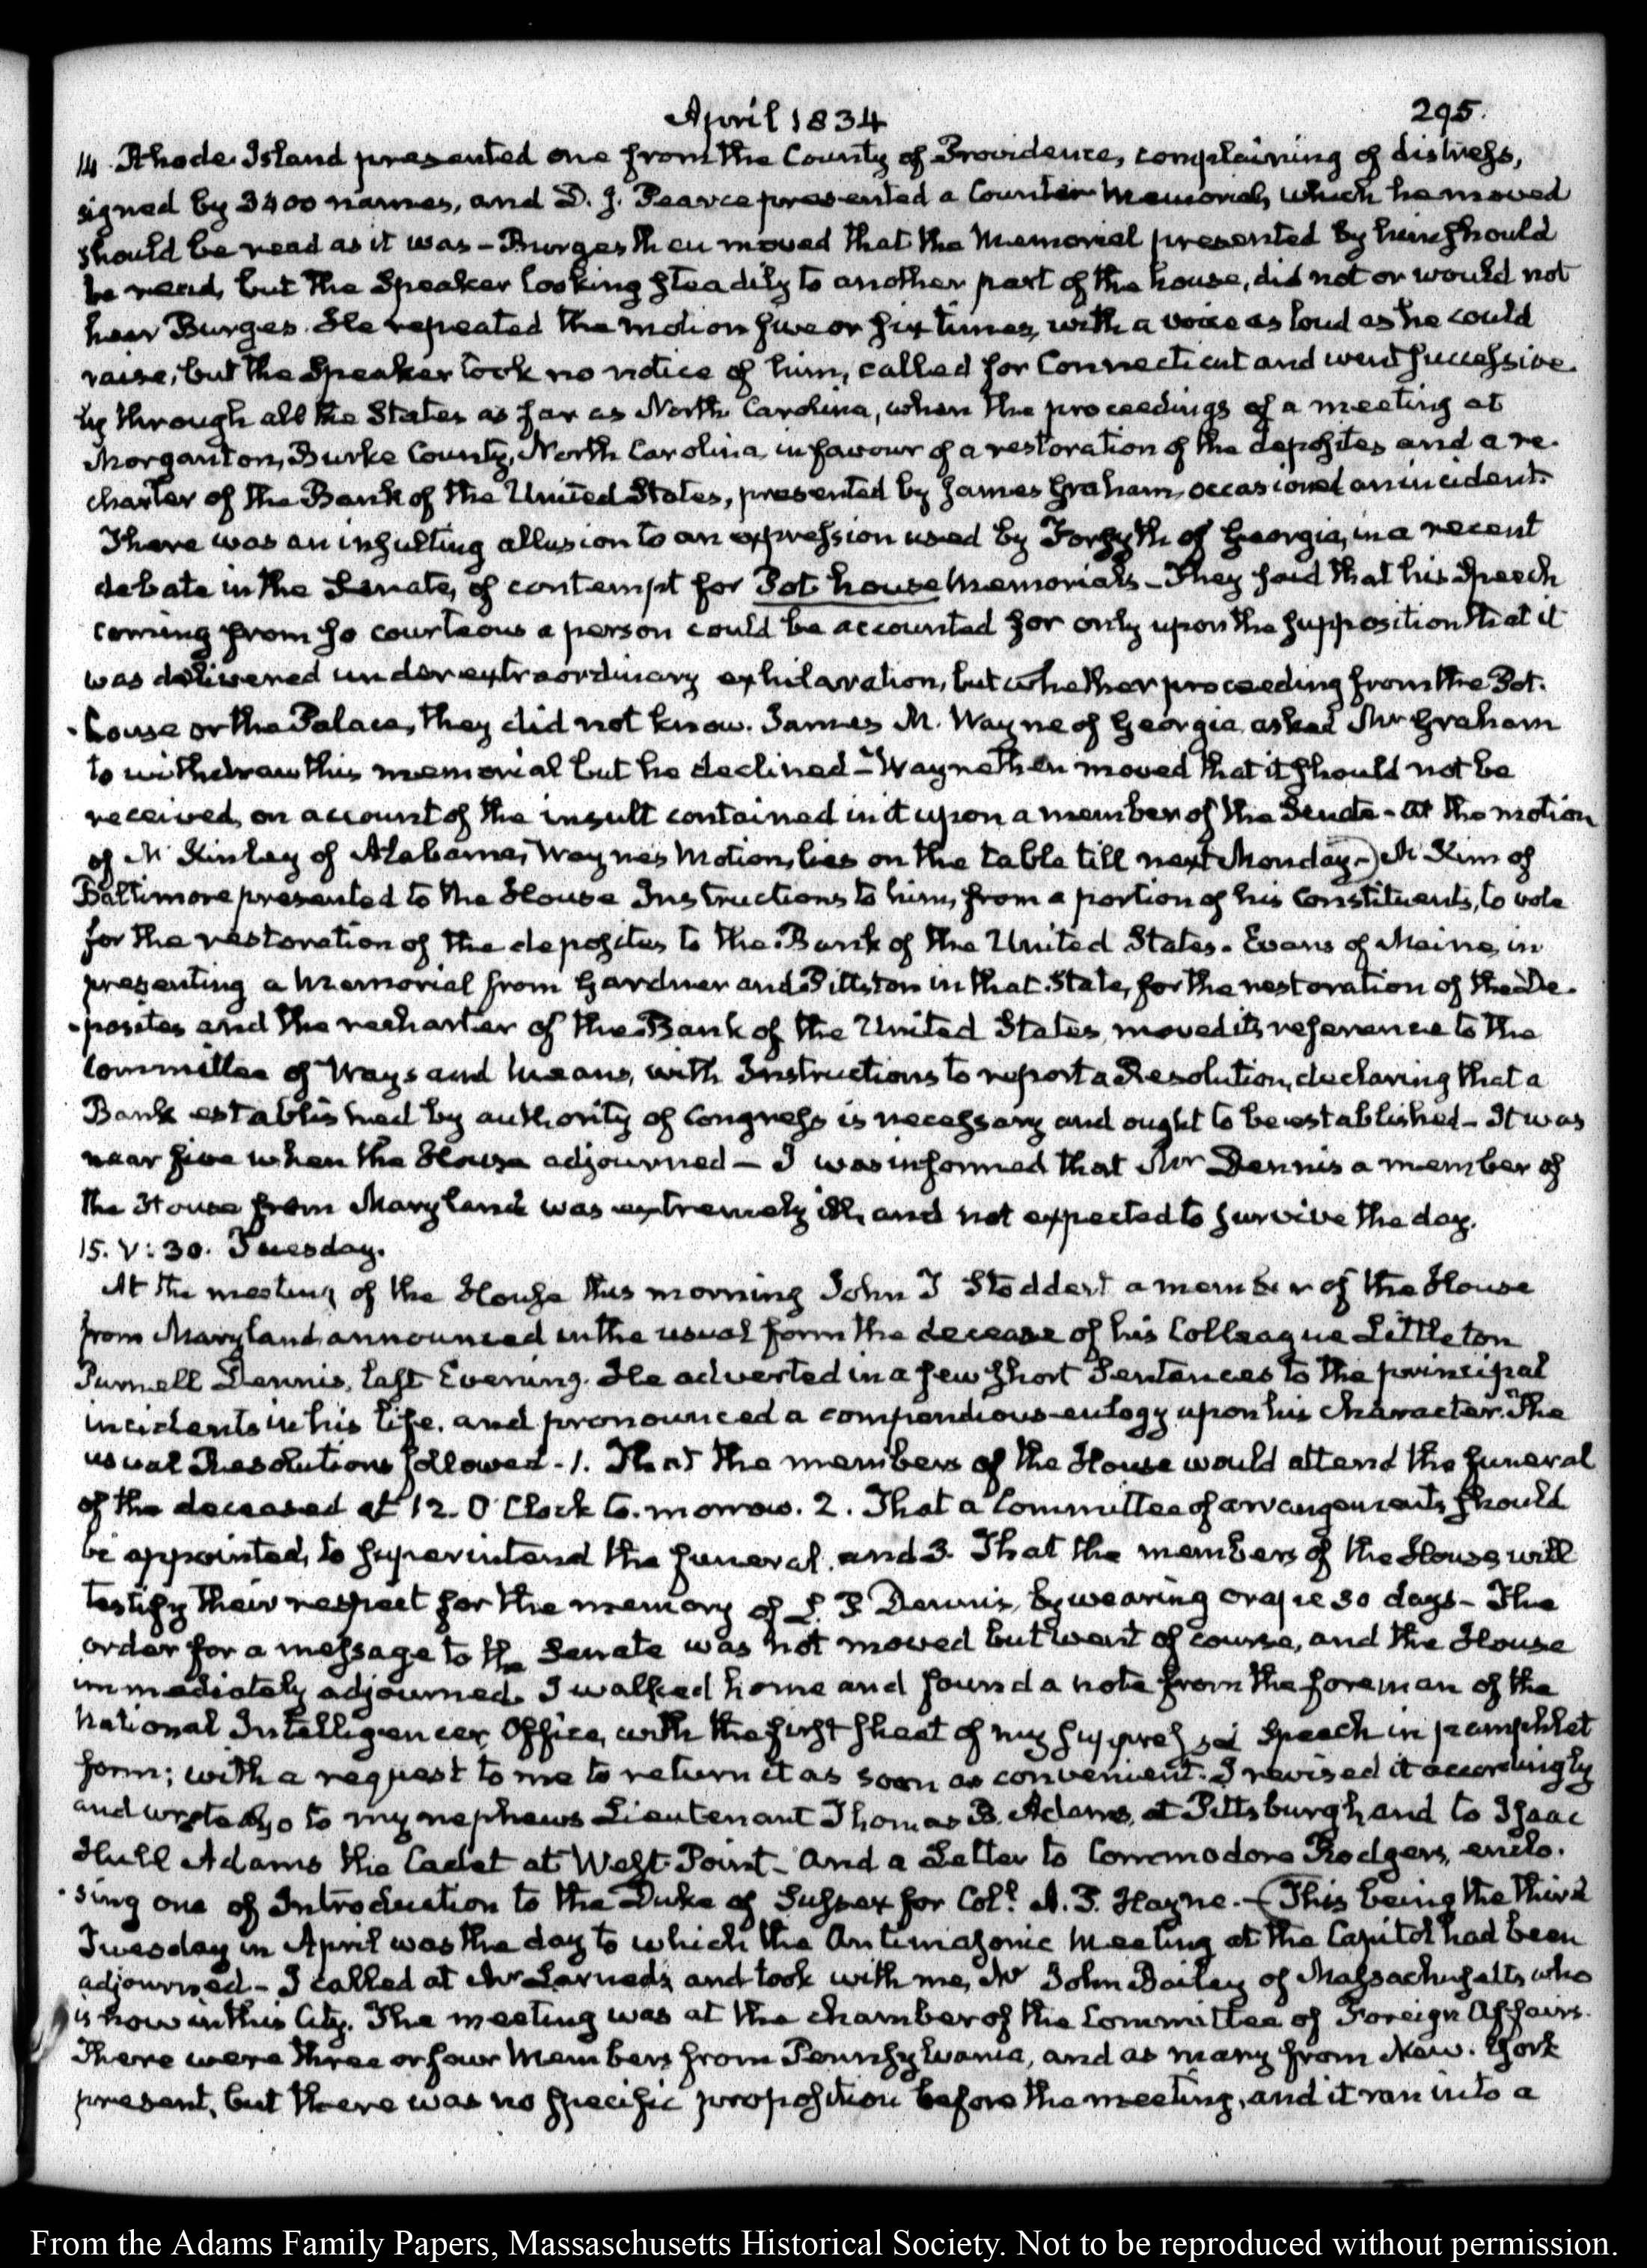 April 1834
295.
14. Rhode Island presented one from the County of Providence, complaining of distress,
signed by 3400 names, and D. J. Pearce presented a Counter Memorial, which he moved
should be read as it was – Burges then moved that the Memorial presented by him should
be read, but the Speaker looking steadily to another part of the house, did not or would not
hear Burges. He repeated the motion five or six times, with a voice as loud as he could
raise, but the Speaker took no notice of him, called for Connecticut and went successive-
ly through all the States as far as North Carolina, when the proceedings of a meeting at
Morganton, Burke County, North Carolina in favour of a restoration of the deposites and a re-
charter of the Bank of the United States, presented by James Graham, occasioned an incident.
There was an insulting allusion to an expression used by Forsyth of Georgia, in a recent
debate in the Senate, of contempt for Pot house Memorials – They said that his Speech
coming from so courteous a person could be accounted for only upon the supposition that it
was delivered under extraordinary exhilaration, but whether proceeding from the Pot-
-house or the Palace, they did not know. James M. Wayne of Georgia asked Mr Graham
to withdraw this memorial but he declined – Wayne then moved that it should not be
received, on account of the insult contained in it upon a member of the Senate – at the motion
of Mc Kinley of Alabama, Wayne's Motion, lies on the table till next Monday –) Mc Kim of
Baltimore presented to the House Instructions to him, from a portion of his Constituents, to vote
for the restoration of the deposites to the Bank of the United States. Evans of Maine, in
presenting a Memorial from Gardner and Pittston in that State, for the restoration of the De-
-posites and the recharter of the Bank of the United States, moved its reference to the
Committee of Ways and Means, with Instructions to report a Resolution, declaring that a
Bank established by authority of Congress is necessary and ought to be established – It was
near five when the House adjourned – I was informed that Mr Dennis a member of
the House from Maryland was extremely ill, and not expected to survive the day.
15. V: 30. Tuesday.
At the meeting of the House this morning John T Stoddert a member of the House
from Maryland announced in the usual form the decease of his Colleague Littleton
Purnell Dennis, last Evening. He adverted in a few short Sentences to the principal
incidents in his life, and pronounced a compendious eulogy upon his character. The
usual Resolutions followed – 1. That the members of the House would attend the funeral
of the deceased at 12. O'Clock to-morrow. 2. That a Committee of arrangements should
be appointed, to superintend the funeral, and 3. That the members of the House will
testify their respect for the memory of L. P. Dennis, by wearing crape 30 days – The
order for a message to the Senate was not moved but went of course, and the House
immediately adjourned. I walked home and found a note from the foreman of the
National Intelligencer Office, with the first sheet of my suppressed Speech in pamphlet
form; with a request to me to return it as soon as convenient. I revised it accordingly
and wrote also to my nephews Lieutenant Thomas B. Adams, at Pittsburgh, and to Isaac
Hull Adams the Cadet at West-Point – And a Letter to Commodore Rodgers, enclo-
-sing one of Introduction to the Duke of Sussex for Coll. A. P. Hayne. – (This being the third
Tuesday in April was the day to which the Antimasonic Meeting at the Capitol had been
adjourned – I called at Mr Larned's and took with me, Mr John Bailey of Massachusetts, who
is now in this City. The meeting was at the chamber of the Committee of Foreign Affairs.
There were three or four Members from Pennsylvania, and as many from New-York
present, but there was no specific proposition before the meeting, and it ran into a
From the Adams Family Papers, Massaschusetts Historical Society. Not to be reproduced without permission.